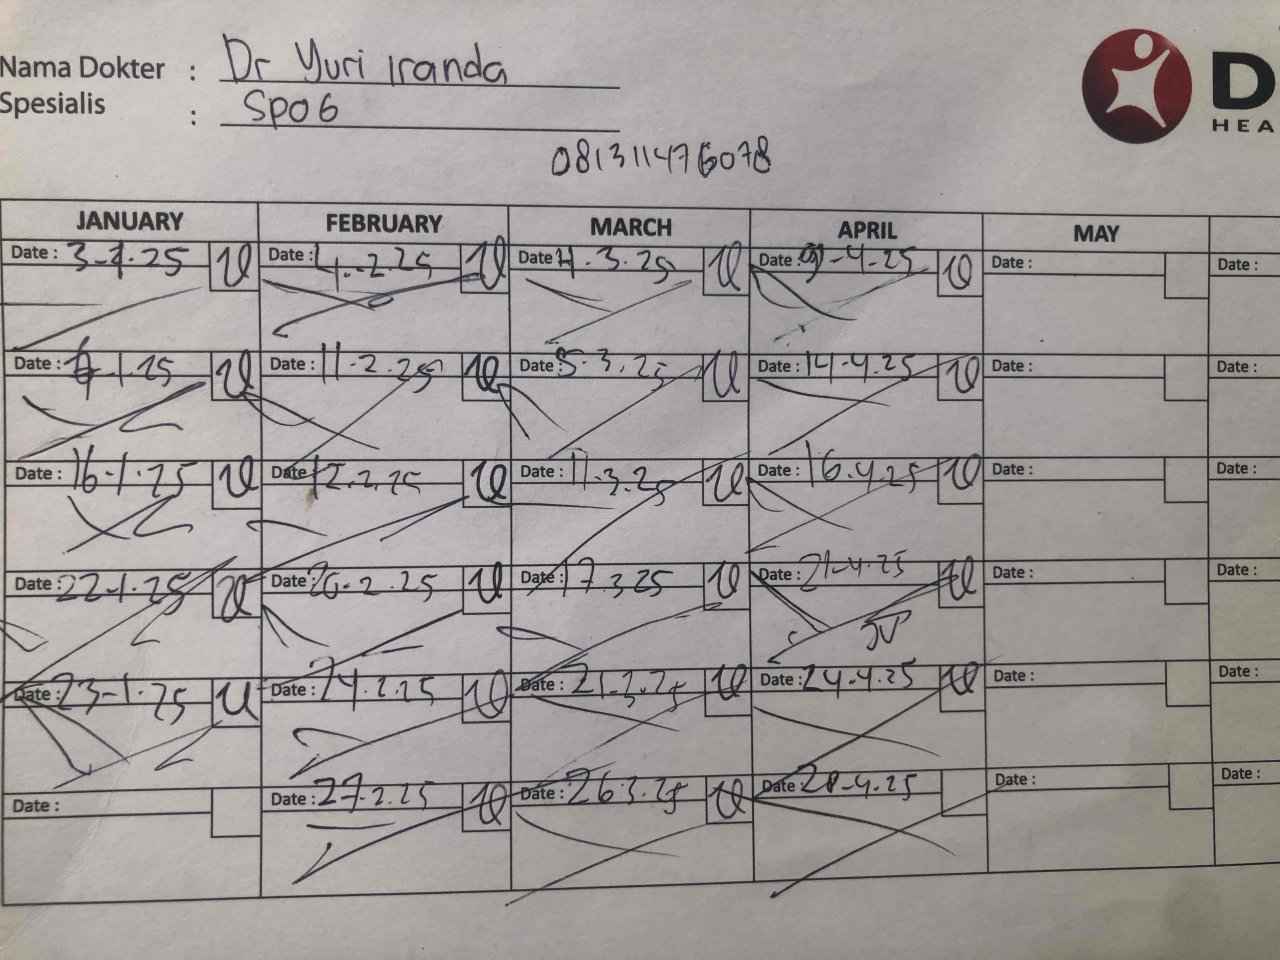 Nama Dokter : Dr Yuri Iranda
Spesialis : SpOG
081311476078
D
HEA
JANUARY FEBRUARY MARCH APRIL MAY
Date : 3-1-25 Date : 4-2-25 Date : 4.3.25 Date : 9-4-25 Date : Date :
Date : 6-1-25 Date : 11-2.25 Date : 5.3.25 Date : 14-4.25 Date : Date :
Date : 16-1.25 Date : 12.2.25 Date : 11-3.25 Date : 16.4.25 Date : Date :
Date : 22-1.25 Date : 20-2.25 Date : 17.3.25 Date : 21-4.25 Date : Date :
JV
Date : 23-1.25 Date : 24.2.25 Date : 21.3.25 Date : 24-4.25 Date : Date :
Date : Date : 27-2.25 Date : 26.3.25 Date : 28-4.25 Date : Date :